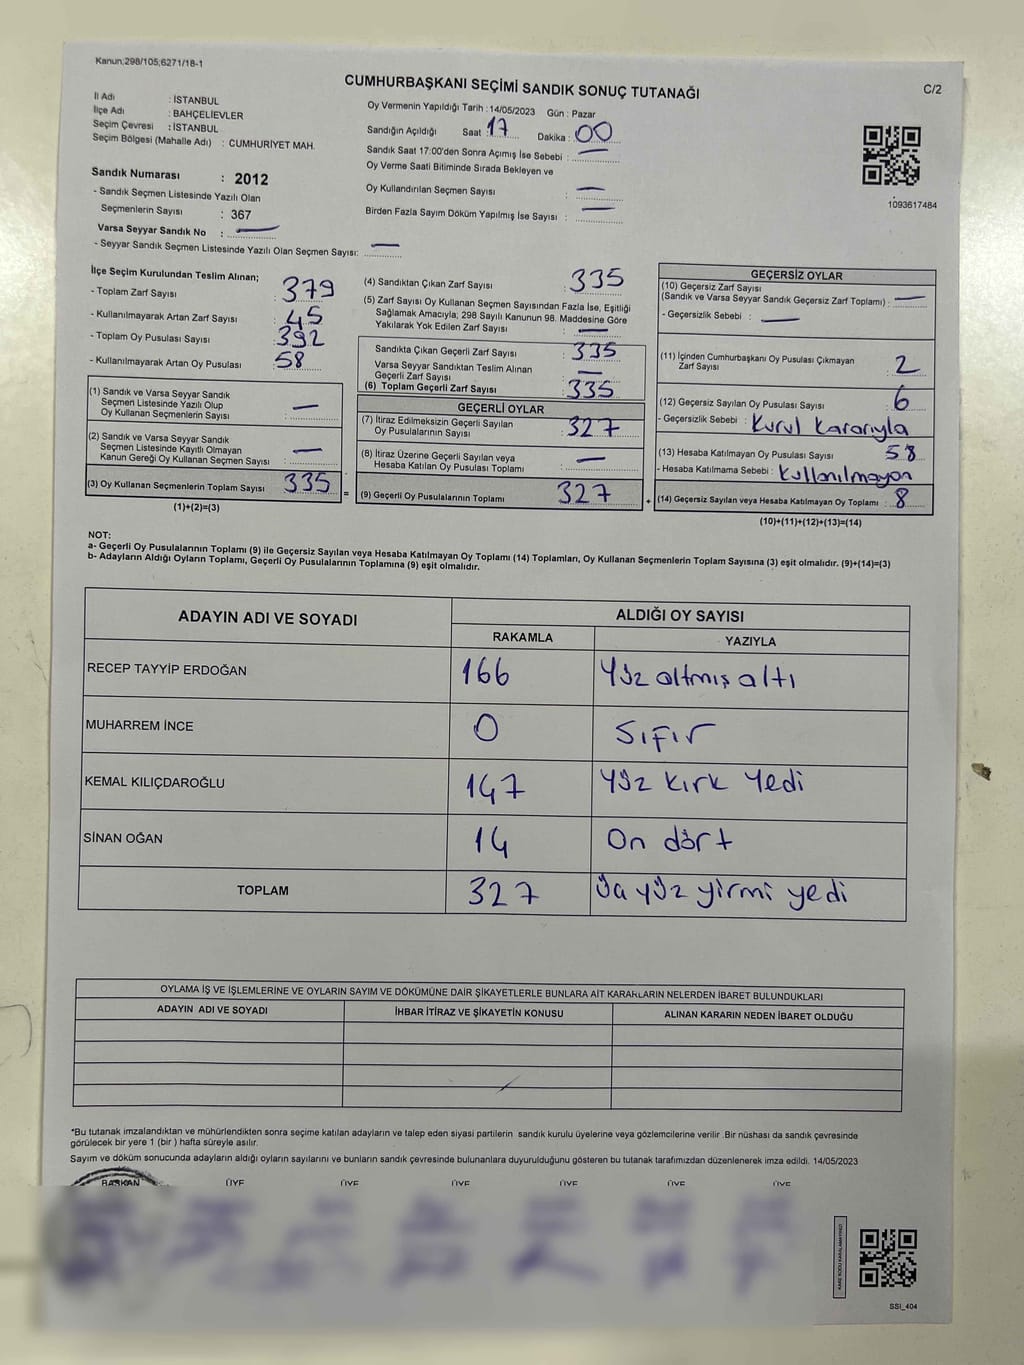 Kanun;298/105;6271/18-1
CUMHURBAŞKANI SEÇİMİ SANDIK SONUÇ TUTANAĞI
C/2
İl Adı : İSTANBUL
İlçe Adı : BAHÇELİEVLER
Seçim Çevresi : İSTANBUL
Seçim Bölgesi (Mahalle Adı) : CUMHURİYET MAH.
Sandık Numarası : 2012
- Sandık Seçmen Listesinde Yazılı Olan
Seçmenlerin Sayısı : 367
Varsa Seyyar Sandık No : —
- Seyyar Sandık Seçmen Listesinde Yazılı Olan Seçmen Sayısı: —
Oy Vermenin Yapıldığı Tarih : 14/05/2023 Gün : Pazar
Sandığın Açıldığı Saat : 17 Dakika : 00
Sandık Saat 17:00'den Sonra Açımış İse Sebebi : —
Oy Verme Saati Bitiminde Sırada Bekleyen ve
Oy Kullandırılan Seçmen Sayısı : —
Birden Fazla Sayım Döküm Yapılmış İse Sayısı : —
1093617484
İlçe Seçim Kurulundan Teslim Alınan;
- Toplam Zarf Sayısı : 379
- Kullanılmayarak Artan Zarf Sayısı : 45
- Toplam Oy Pusulası Sayısı : 392
- Kullanılmayarak Artan Oy Pusulası : 58
(1) Sandık ve Varsa Seyyar Sandık
Seçmen Listesinde Yazılı Olup
Oy Kullanan Seçmenlerin Sayısı : —
(2) Sandık ve Varsa Seyyar Sandık
Seçmen Listesinde Kayıtlı Olmayan
Kanun Gereği Oy Kullanan Seçmen Sayısı : —
(3) Oy Kullanan Seçmenlerin Toplam Sayısı : 335
(1)+(2)=(3)
=
(4) Sandıktan Çıkan Zarf Sayısı : 335
(5) Zarf Sayısı Oy Kullanan Seçmen Sayısından Fazla İse, Eşitliği
Sağlamak Amacıyla; 298 Sayılı Kanunun 98. Maddesine Göre
Yakılarak Yok Edilen Zarf Sayısı : —
Sandıkta Çıkan Geçerli Zarf Sayısı : 335
Varsa Seyyar Sandıktan Teslim Alınan
Geçerli Zarf Sayısı : —
(6) Toplam Geçerli Zarf Sayısı : 335
GEÇERLİ OYLAR
(7) İtiraz Edilmeksizin Geçerli Sayılan
Oy Pusulalarının Sayısı : 327
(8) İtiraz Üzerine Geçerli Sayılan veya
Hesaba Katılan Oy Pusulası Toplamı : —
(9) Geçerli Oy Pusulalarının Toplamı : 327
+
GEÇERSİZ OYLAR
(10) Geçersiz Zarf Sayısı
(Sandık ve Varsa Seyyar Sandık Geçersiz Zarf Toplamı) : —
- Geçersizlik Sebebi : —
(11) İçinden Cumhurbaşkanı Oy Pusulası Çıkmayan
Zarf Sayısı : 2
(12) Geçersiz Sayılan Oy Pusulası Sayısı : 6
- Geçersizlik Sebebi : Kurul Kararıyla
(13) Hesaba Katılmayan Oy Pusulası Sayısı : 58
- Hesaba Katılmama Sebebi : Kullanılmayan
(14) Geçersiz Sayılan veya Hesaba Katılmayan Oy Toplamı : 8
(10)+(11)+(12)+(13)=(14)
NOT:
a- Geçerli Oy Pusulalarının Toplamı (9) ile Geçersiz Sayılan veya Hesaba Katılmayan Oy Toplamı (14) Toplamları, Oy Kullanan Seçmenlerin Toplam Sayısına (3) eşit olmalıdır. (9)+(14)=(3)
b- Adayların Aldığı Oyların Toplamı, Geçerli Oy Pusulalarının Toplamına (9) eşit olmalıdır.
ADAYIN ADI VE SOYADI
ALDIĞI OY SAYISI
RAKAMLA YAZIYLA
RECEP TAYYİP ERDOĞAN 166 Yüz altmış altı
MUHARREM İNCE 0 Sıfır
KEMAL KILIÇDAROĞLU 147 Yüz kırk yedi
SİNAN OĞAN 14 On dört
TOPLAM 327 Üç yüz yirmi yedi
OYLAMA İŞ VE İŞLEMLERİNE VE OYLARIN SAYIM VE DÖKÜMÜNE DAİR ŞİKAYETLERLE BUNLARA AİT KARARLARIN NELERDEN İBARET BULUNDUKLARI
ADAYIN ADI VE SOYADI İHBAR İTİRAZ VE ŞİKAYETİN KONUSU ALINAN KARARIN NEDEN İBARET OLDUĞU
*Bu tutanak imzalandıktan ve mühürlendikten sonra seçime katılan adayların ve talep eden siyasi partilerin sandık kurulu üyelerine veya gözlemcilerine verilir .Bir nüshası da sandık çevresinde
görülecek bir yere 1 (bir ) hafta süreyle asılır.
Sayım ve döküm sonucunda adayların aldığı oyların sayılarını ve bunların sandık çevresinde bulunanlara duyurulduğunu gösteren bu tutanak tarafımızdan düzenlenerek imza edildi. 14/05/2023
BAŞKAN ÜYE ÜYE ÜYE ÜYE ÜYE ÜYE
KARE KODU KARALAMAYINIZ!
SSİ_404